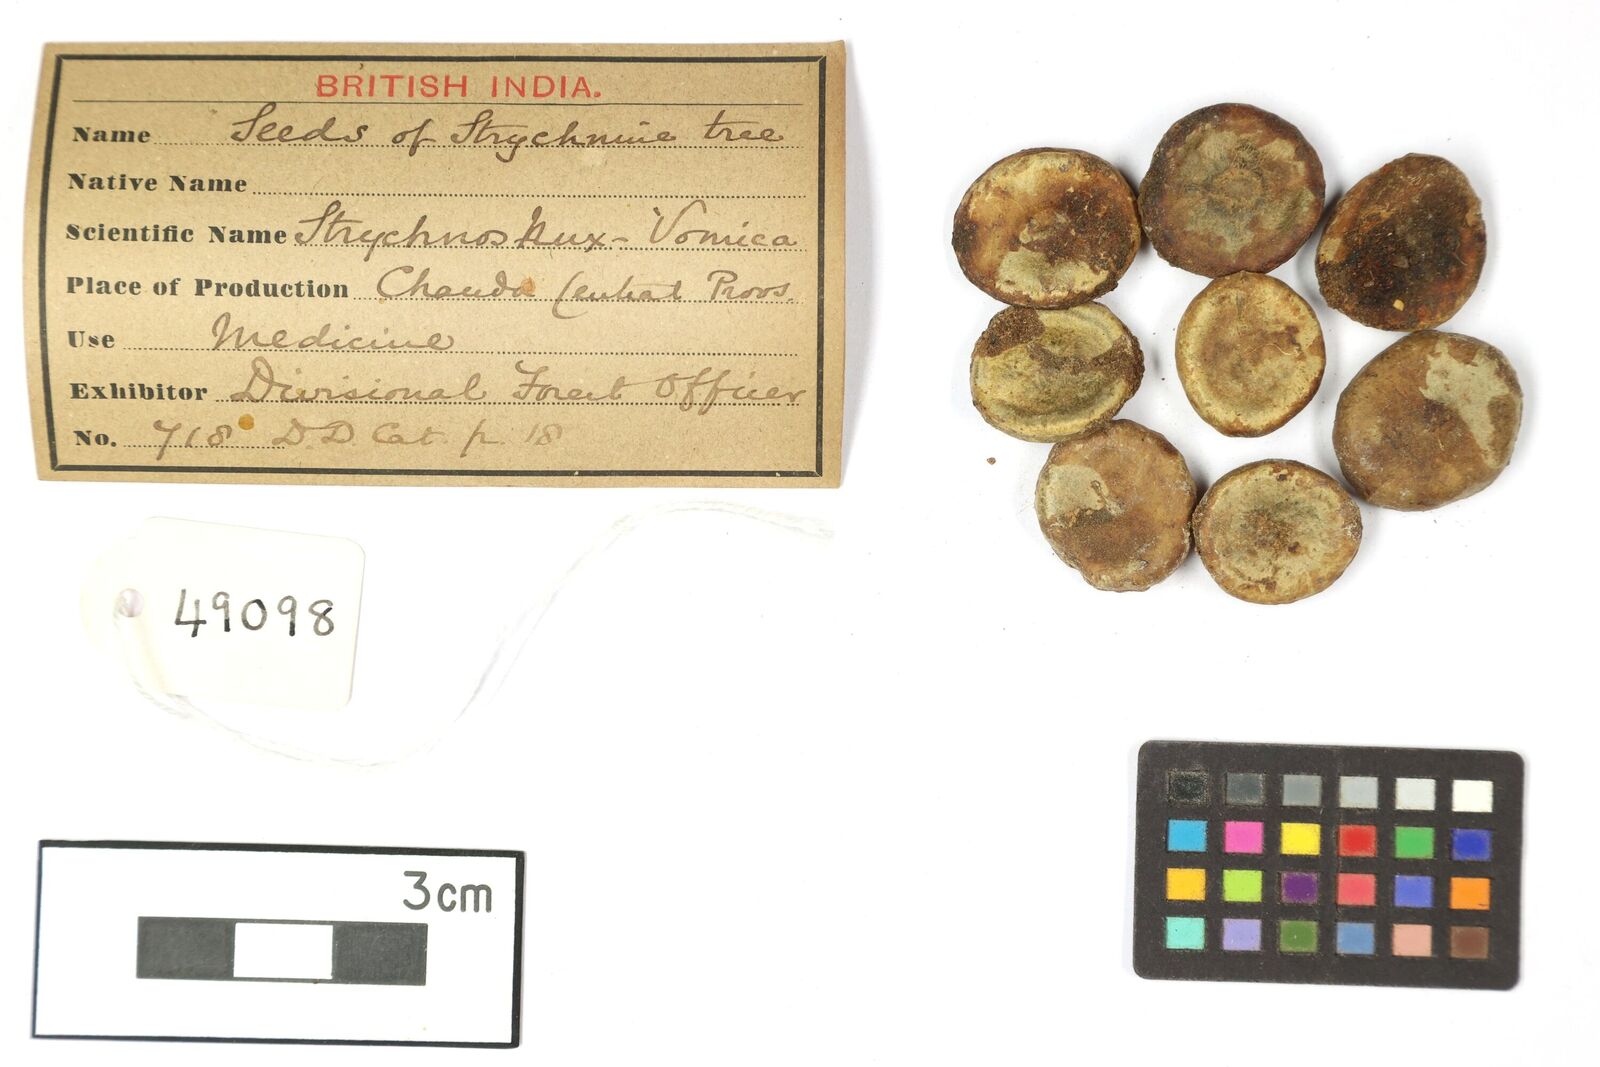 BRITISH INDIA.
Name Seeds of Strychnine tree
Native Name
Scientific Name Strychnos Nux-Vomica
Place of Production Chanda Central Provs.
Use Medicine
Exhibitor Divisional Forest Officer
No. 718 D.D Cat. p. 18
49098
3cm